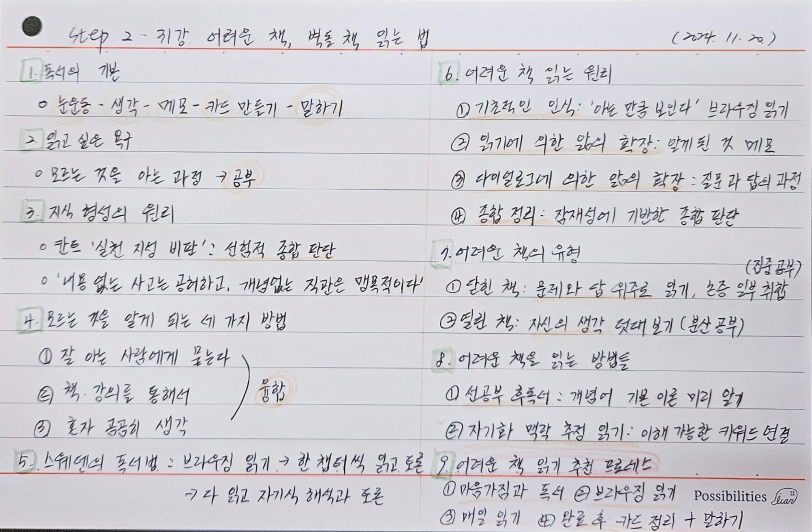 Step 2 - 3강 어려운 책, 벽돌 책 읽는 법
(2024. 11. 20)
1. 독서의 기본
○ 눈운동 - 생각 - 메모 - 카드 만들기 - 말하기
2. 읽고 싶은 욕구
○ 모르는 것을 아는 과정 → 공부
3. 지식 형성의 원리
○ 칸트 '실천 지성 비판': 선험적 종합 판단
○ '내용 없는 사고는 공허하고, 개념없는 직관은 맹목적이다'
4. 모르는 것을 알게 되는 세 가지 방법
① 잘 아는 사람에게 묻는다
② 책·강의를 통해서
③ 혼자 곰곰히 생각
융합
5. 스웨덴의 독서법 : 브라우징 읽기 → 한 챕터씩 읽고 토론
→ 다 읽고 자기식 해석과 토론
6. 어려운 책 읽는 원리
① 기초적인 인식: '아는 만큼 보인다' 브라우징 읽기
② 읽기에 의한 앎의 확장: 알게 된 것 메모
③ 다이얼로그에 의한 앎의 확장 : 질문과 답의 과정
④ 종합 정리 : 잠재성에 기반한 종합 판단
7. 어려운 책의 유형
① 닫힌 책: 문제와 답 위주로 읽기, 논증 일부 취합 (집중 공부)
② 열린 책: 자신의 생각 덧대 보기 (분산 공부)
8. 어려운 책을 읽는 방법들
① 선공부 후독서 : 개념어 기본 이론 미리 알기
② 자기화 맥락 추정 읽기 : 이해 가능한 키워드 연결
9. 어려운 책 읽기 추천 프로세스
① 마음가짐과 독서 ② 브라우징 읽기
③ 매일 읽기 ④ 완료 후 카드 정리 + 말하기
Possibilities